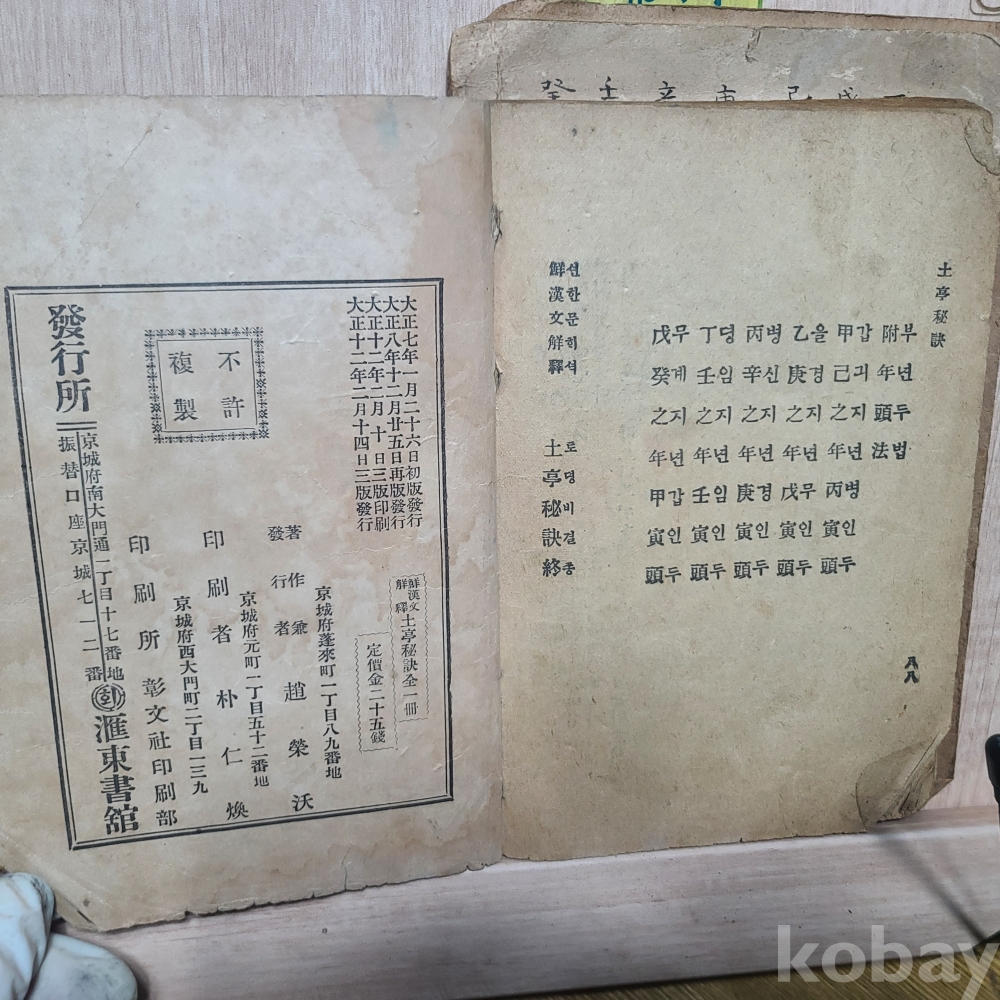 癸 壬 辛 庚 己 戊 丁
土亭秘訣
附부年년頭두法법
甲갑己긔之지年년丙병寅인頭두
乙을庚경之지年년戊무寅인頭두
丙병辛신之지年년庚경寅인頭두
丁뎡壬임之지年년壬임寅인頭두
戊무癸계之지年년甲갑寅인頭두
鮮션漢한文문解히釋셕 土토亭뎡秘비訣결終종
八八
大正七年一月二十六日初版發行
大正八年十二月廿五日再版發行
大正十二年二月十日三版印刷
大正十二年二月十四日三版發行
不許
複製
鮮漢文解釋 土亭秘訣全一冊
定價金二十五錢
京城府蓬來町一丁目八九番地
著作兼發行者 趙榮沃
京城府元町一丁目五十二番地
印刷者 朴仁煥
京城府西大門町二丁目一三九
印刷所 彰文社印刷部
京城府南大門通一丁目十七番地
發行所 滙東書舘
振替口座京城七一二番
kobay